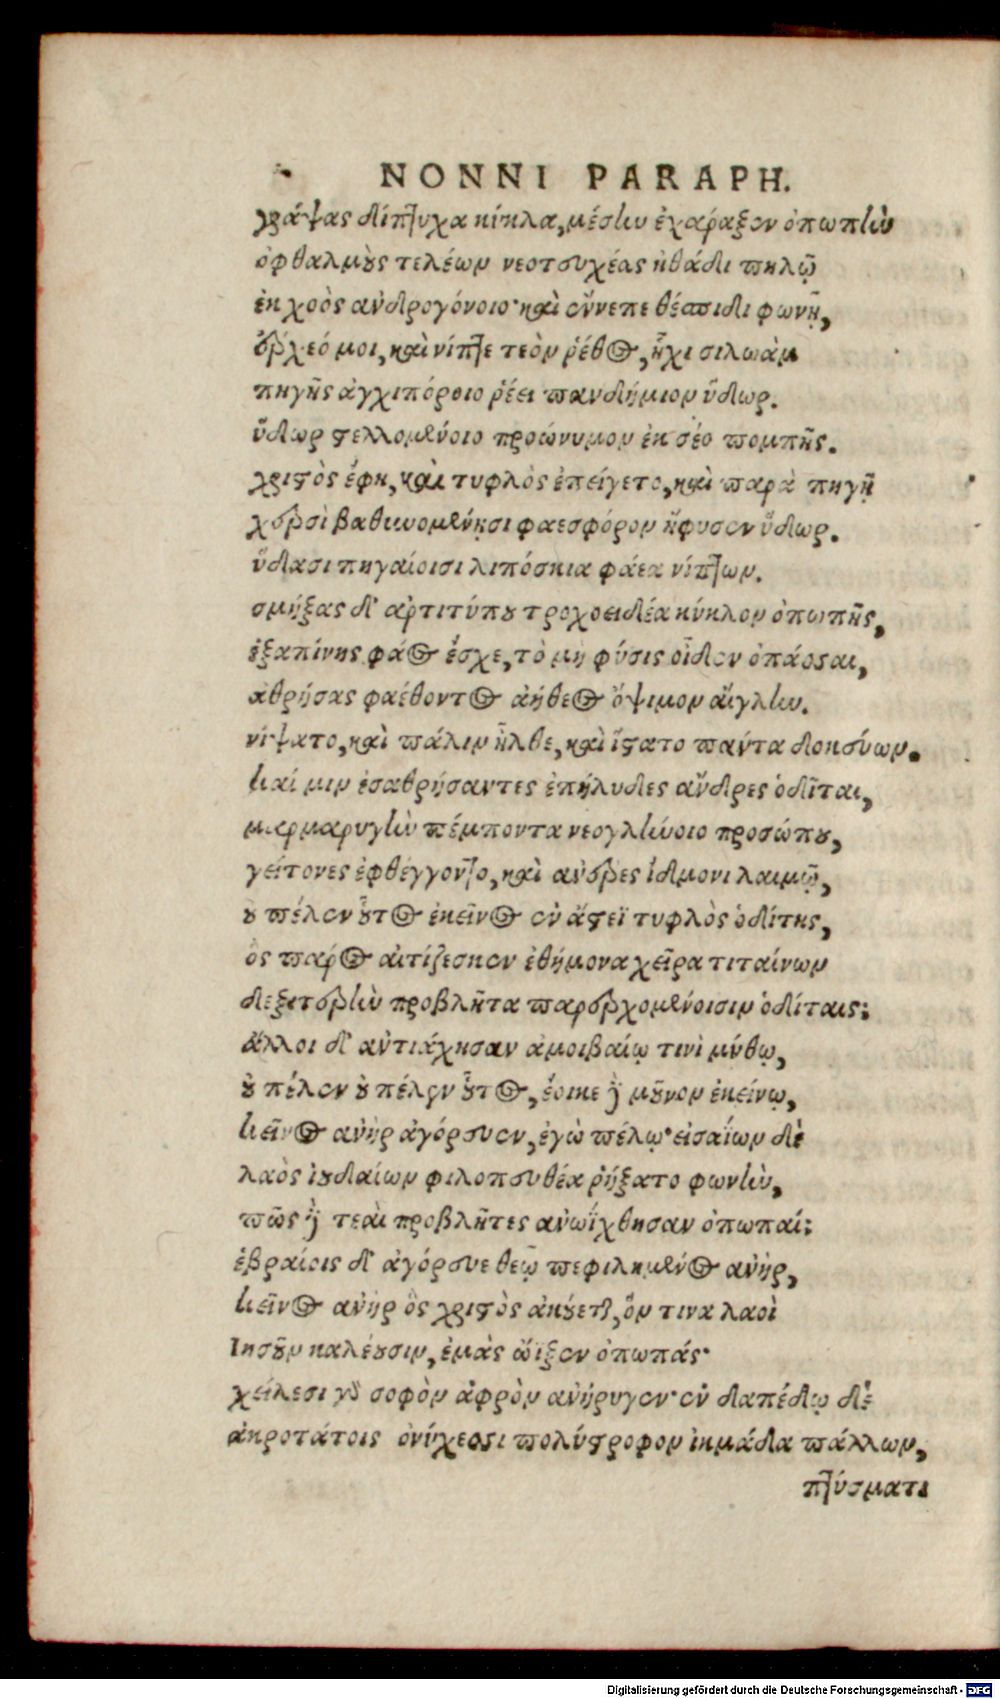 NONNI PARAPH.
γράψας δίπτυχα κίκλα, μέσην ἐχάραξεν ὀπωπὴν
ὀφθαλμοὺς τελέων νεοτευχέας ἠθάδι πηλῷ
ἐκ χοὸς ἀνδρογόνοιο· καὶ ἔννεπε θέσπιδι φωνῇ,
ἔρχεό μοι, καὶ νίπτε τεὸν ῥέθος, ἧχι σιλωὰμ
πηγῆς ἀγχιπόροιο ῥέει πανδήμιον ὕδωρ.
ὕδωρ στελλομένοιο προώνυμον ἐκ σέο πομπῆς.
χριστὸς ἔφη, καὶ τυφλὸς ἐπείγετο, καὶ παρὰ πηγῇ
χερσὶ βαθυνομένῃσι φαεσφόρον ἤφυσεν ὕδωρ.
ὕδασι πηγαίοισι λιπόσκια φάεα νίπτων.
σμήξας δ' ἀρτιτύπου τροχοειδέα κύκλον ὀπωπῆς,
ἐξαπίνης φάος ἔσχε, τὸ μὴ φύσις οἶδεν ὀπάσσαι,
ἀθρήσας φαέθοντος ἀήθεος ὄψιμον αἴγλην.
νίψατο, καὶ πάλιν ἦλθε, καὶ ἵστατο πάντα δοκεύων.
καί μιν ἐσαθρήσαντες ἐπήλυδες ἄνδρες ὁδῖται,
μαρμαρυγὴν πέμποντα νεογλήνοιο προσώπου,
γείτονες ἐφθέγγοντο, καὶ ἀνέρες ἴδμονι λαιμῷ,
οὐ πέλεν οὗτος ἐκεῖνος ἐν ἄστεϊ τυφλὸς ὁδίτης,
ὃς πάρος αἰτίζεσκεν ἐθήμονα χεῖρα τιταίνων
δεξιτερὴν προβλῆτα παρερχομένοισιν ὁδίταις;
ἄλλοι δ' ἀντιάχησαν ἀμοιβαίῳ τινὶ μύθῳ,
οὐ πέλεν οὐ πέλεν οὗτος, ἔοικε δὲ μοῦνον ἐκείνῳ,
κεῖνος ἀνὴρ ἀγόρευεν, ἐγὼ πέλῳ· εἰσαΐων δὲ
λαὸς ἰουδαίων φιλοπευθέα ῥήξατο φωνὴν,
πῶς δὲ τεαὶ προβλῆτες ἀνωΐχθησαν ὀπωπαί;
ἑβραίοις δ' ἀγόρευε θεῷ πεφιλημένος ἀνὴρ,
κεῖνος ἀνὴρ ὃς χριστὸς ἀκούεται, ὅν τινα λαοὶ
Ἰησοῦν καλέουσιν, ἐμὰς ὤϊξεν ὀπωπάς·
χείλεσι γὰρ σοφὸν ἀφρὸν ἀνήρυγεν· ἐν δαπέδῳ δὲ
ἀκροτάτοις ὀνύχεσσι πολύστροφον ἰκμάδα πάλλων,
πτύσματι
Digitalisierung gefördert durch die Deutsche Forschungsgemeinschaft - DFG